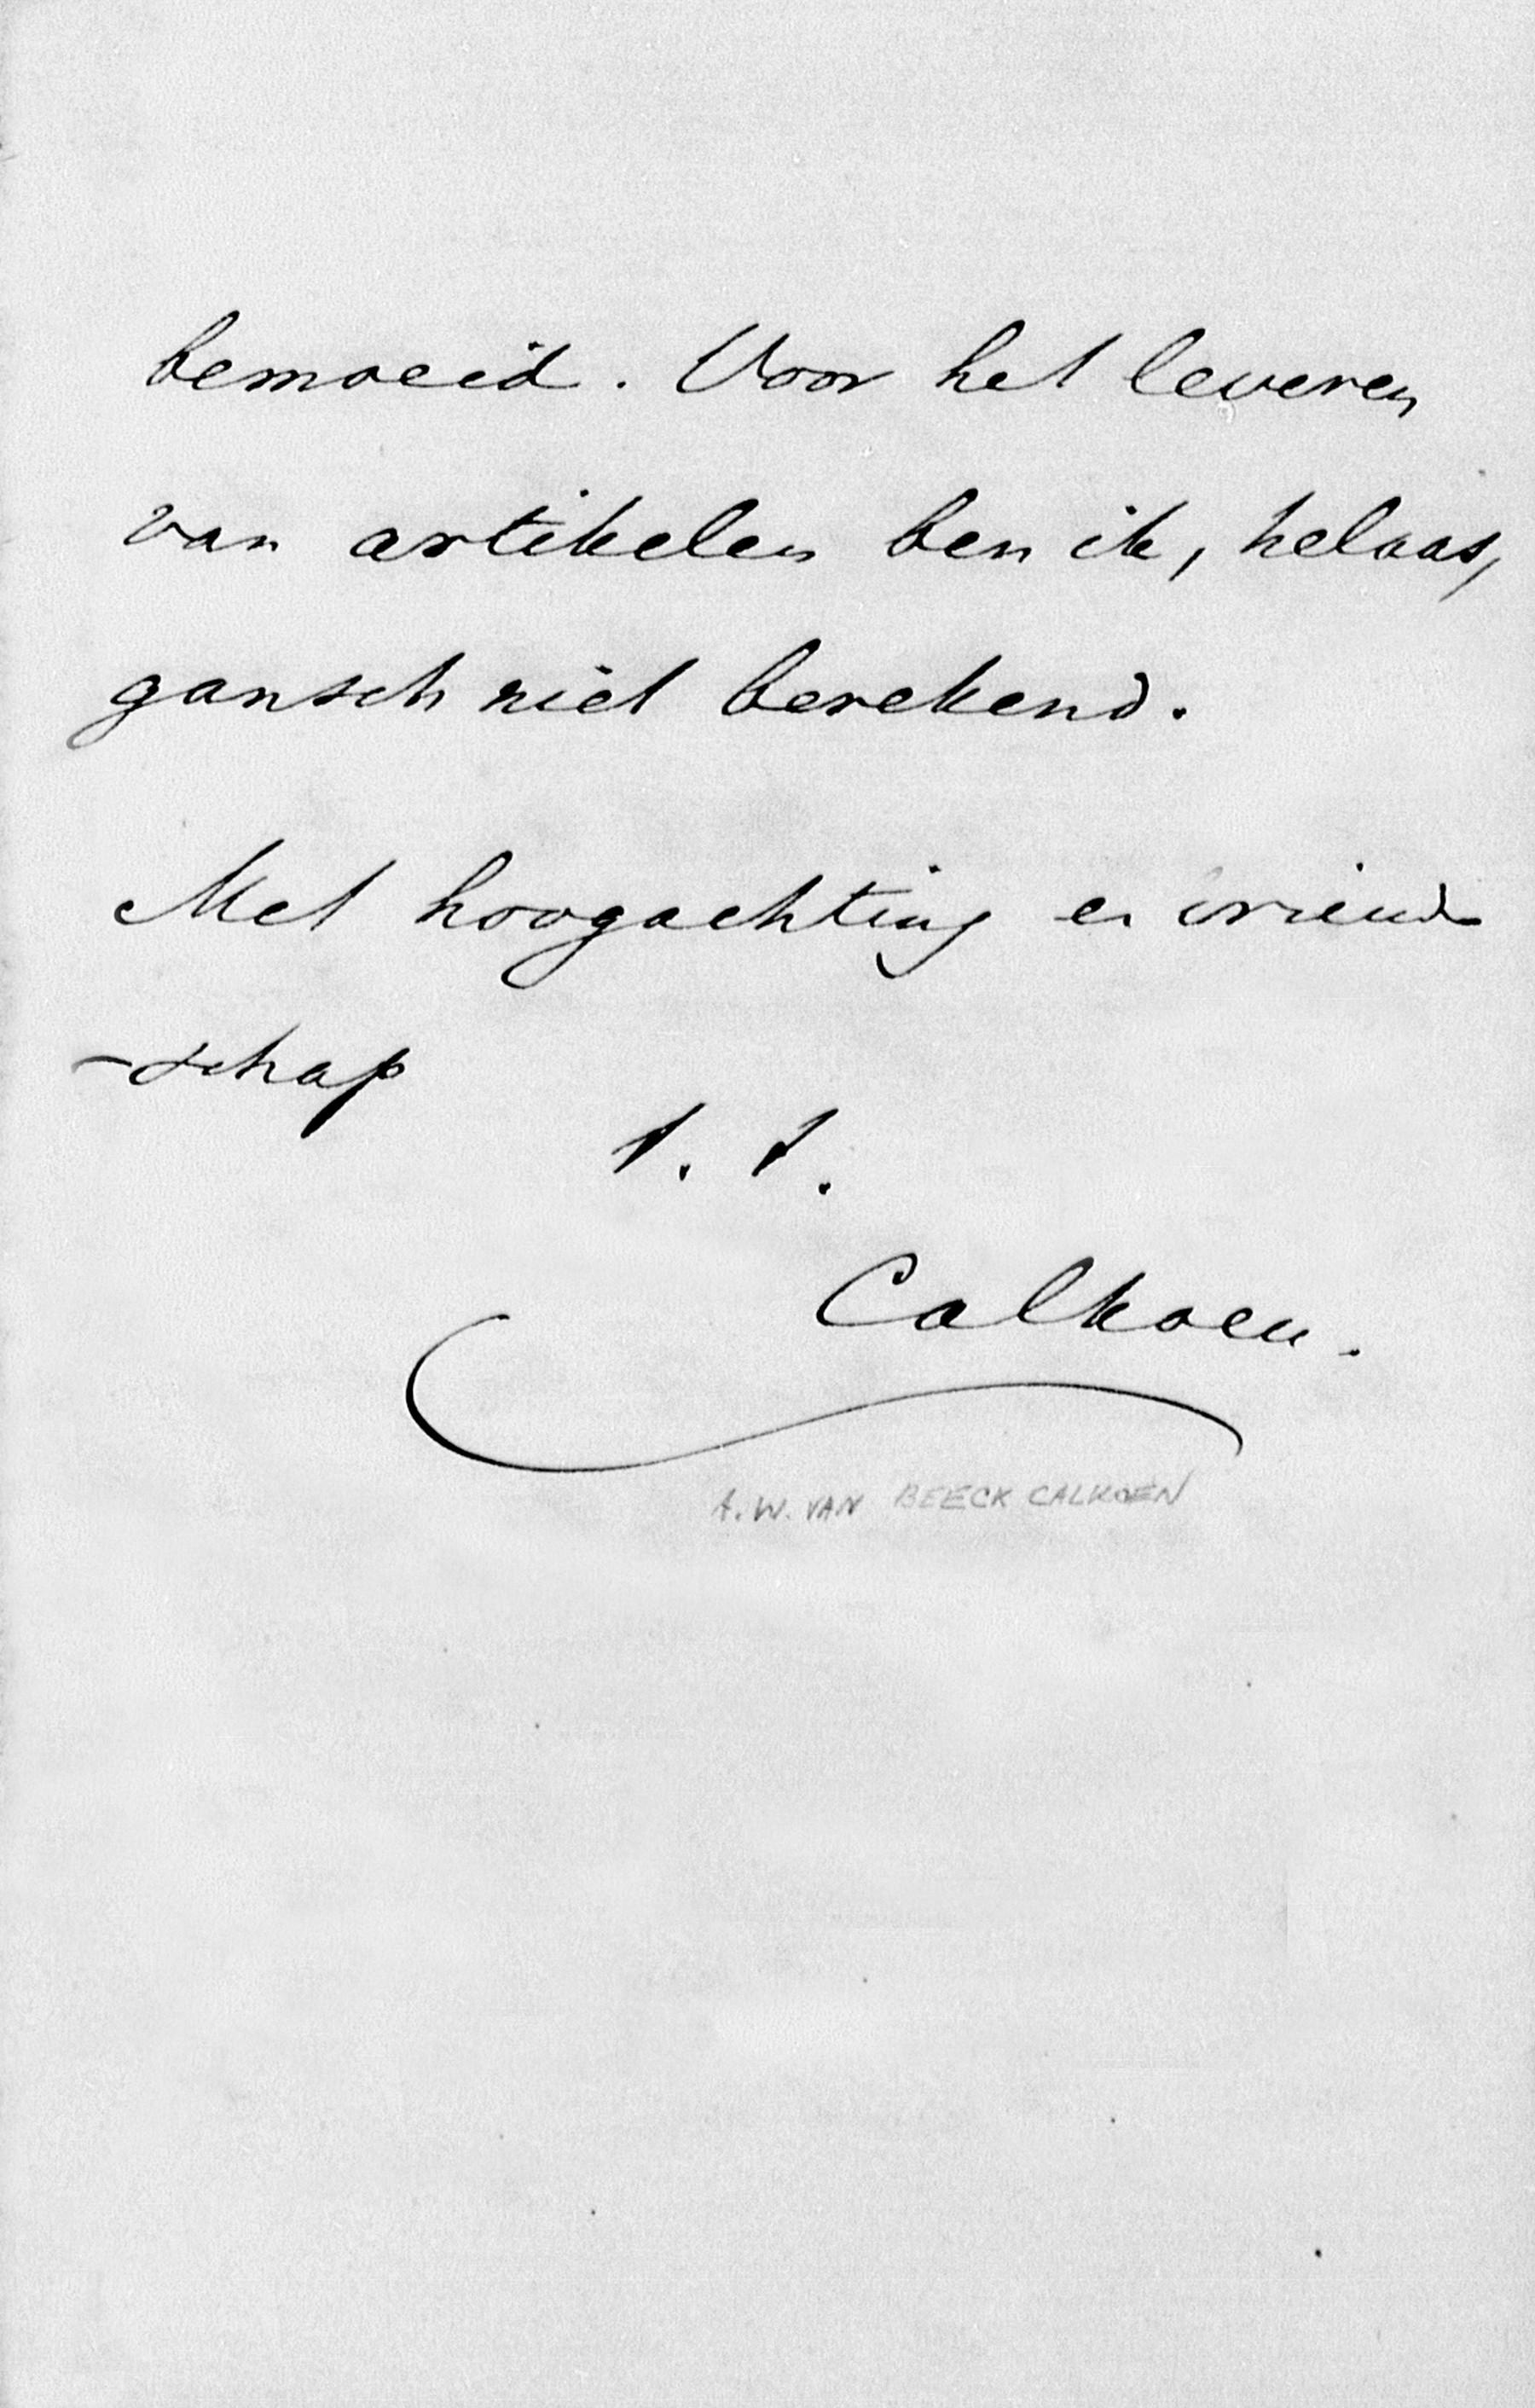 bemoeid. Voor het leveren
van artikelen ben ik, helaas,
gansch niet berekend.
Met hoogachting en vriend
-schap
t. t.
Calkoen.
A. W. VAN BEECK CALKOEN